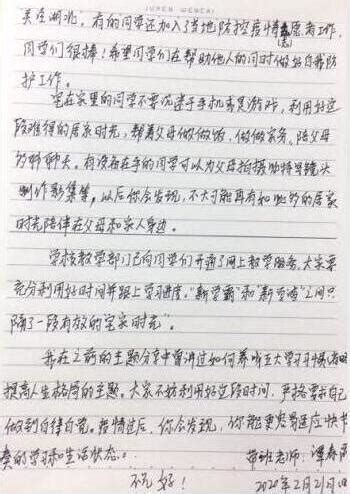 JUREN WENCAI
关注湖北。有的同学还加入了当地防控疫情志愿者工作,
同学们很棒!希望同学们在帮助他人的同时做好自我防
护工作。
宅在家里的同学不要沉迷于手机或是游戏,利用好这
段难得的居家时光,帮着父母做做饭,做做家务,陪父母
聊聊天。有设备在手的同学可以为父母拍摄独特的镜头
制作影集等,以后你会发现,不大可能再有如此多的居家
时光陪伴在父母和家人身边。
学校教学部门已向同学们开通了网上教学服务,大家要
充分利用好时间并跟上学习进度。"新学霸"和"新学渣"之间只
隔了一段有效的"宅家时光"。
我在之前的主题分享中曾讲过如何养成大学学习惯
提高人生格局的主题。大家不妨利用好这段时间,严格要求自己
做到自律自觉。疫情过后,你会发现,你能更容易适应快节
奏的学习和生活状态。
带班老师:谭
祝好!
2020年2月21日